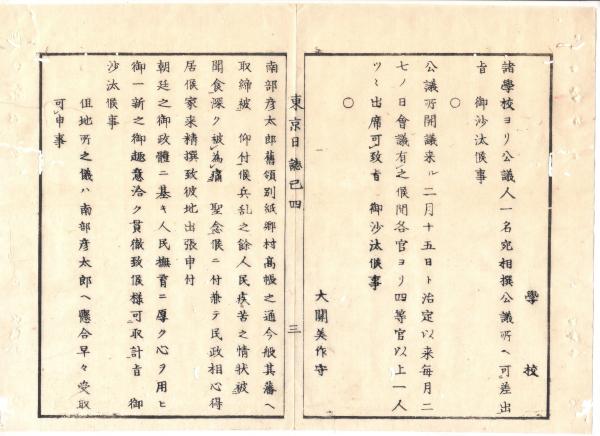 學校
諸學校ヨリ公議人一名宛相撰公議所ヘ可差出
旨　御沙汰候事
○
公議所開議来ル二月十五日ト治定以来毎月二
七ノ日會議有之候間各官ヨリ四等官以上一人
ツヽ出席可致旨　御沙汰候事
○
大關美作守
東京日誌己四　三
南部彦太郎舊領別紙郷村高帳之通今般其藩ヘ
取締被　仰付候兵乱之餘人民疾苦之情状被
聞食深ク被為痛　聖念候ニ付兼テ民政相心得
居候家来精撰致彼地出張申付
朝廷之御政體ニ基キ人民撫育ニ厚ク心ヲ用ヒ
御一新之御趣意洽ク貫徹致候様可取計旨　御
沙汰候事
但地所之儀ハ南部彦太郎ヘ懸合早々受取
可申事